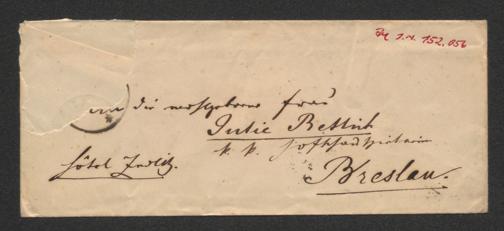 J.N. 152.056
An die wohlgeborene Frau
Julie Rettich
k. k. Hofschauspielerin
Hôtel Zedlitz.
Breslau.